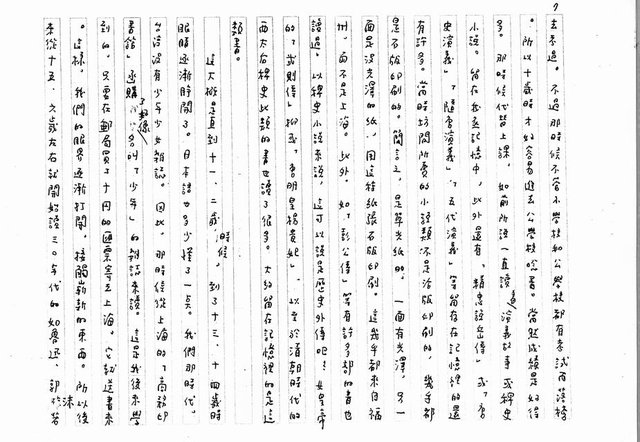 7
去不過。不過那時候不管小學校和公學校都有考試而落榜
。所以十歲時才好容易進去公學校唸書。當然成績是好得
多。那時候代替上課,如前所說一直讀過演義故事或稗史
小說。留在我底記憶中,此外還有「精忠說岳傳」或「
史演義」「隨唐演義」「五代演義」等留存在記憶裡的還
有許多。當時坊間所賣的小說類不是活版印刷的,幾乎都
是石版印刷的。簡言之,是草光紙的,一面有光澤,另一
面是沒光澤的紙,因這種紙張石版印刷。這幾乎都來自福
州,而不是上海。此外,如「彭公傳」等有許多部的書也
讀過。以稗史小說來說,這可以說是歷史外傳吧!如皇帝
的「武則傳」抑或「唐明皇楊貴妃」,以至於清朝時代的
西太后稗史此類的書也讀了很多。大約留在記憶裡的是這
類書。
這大概是直到十一、二歲時候,到了十三、十四歲時
眼睛逐漸睜開了。日本語也多少懂了一點。我們那時代,
台灣沒有少年少女雜誌。因此,那時候從上海的「商務印
書館」函購了好像名叫「少年」的雜誌來讀。這是我後來學
到的,只要在郵局買了十円的匯票寄去上海,它就送書來
。這樣,我們的眼界逐漸打開,接觸嶄新的東西。所以後
來從十五、六歲左右就開始讀三〇年代的如魯迅、郭沫若